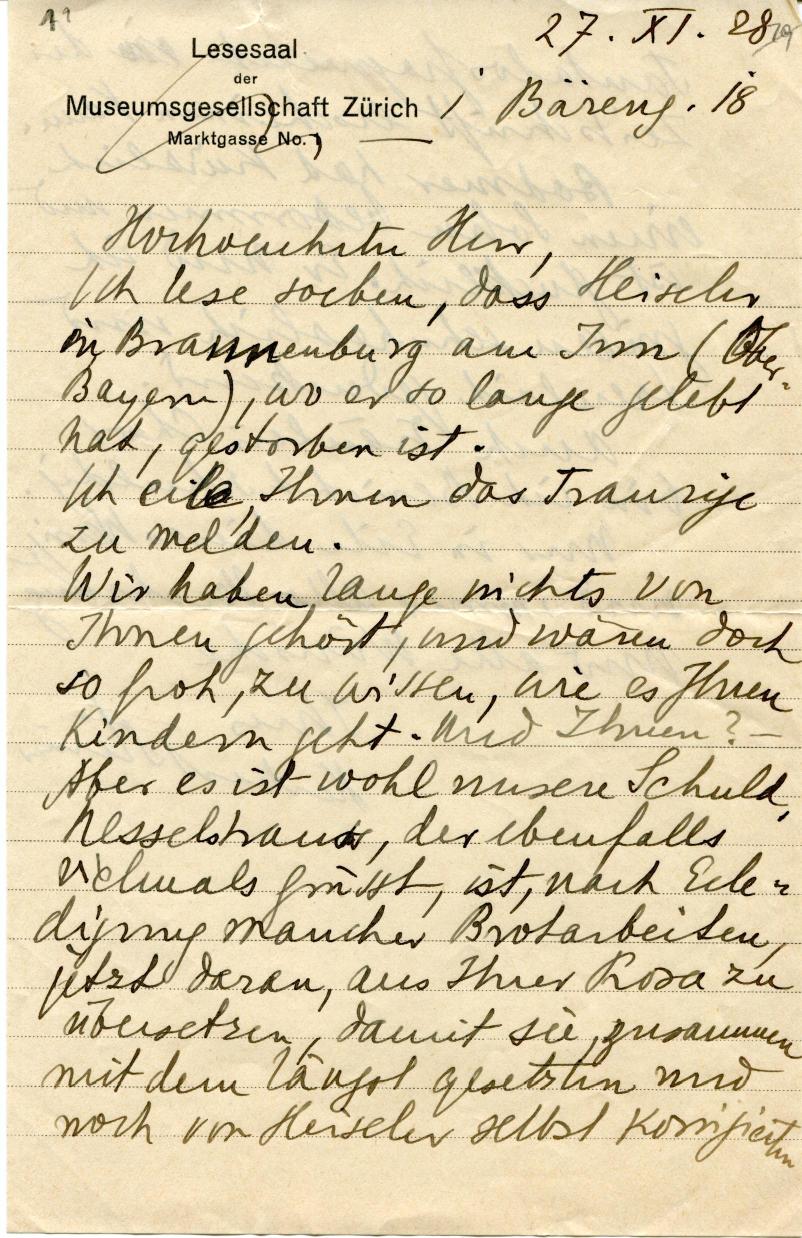 27. XI. 28
Lesesaal
der
Museumsgesellschaft Zürich / Bäreng. 18
Marktgasse No. 1
Hochverehrter Herr,
Ich lese soeben, dass Heiseler
in Brannenburg am Inn (Ober-
Bayern), wo er so lange gelebt
hat, gestorben ist.
Ich eile, Ihnen das Traurige
zu melden.
Wir haben lange nichts von
Ihnen gehört, und wären doch
so froh, zu wissen, wie es Ihnen
Kindern geht. Und Ihnen? —
Aber es ist wohl unsere Schuld,
der ebenfalls
vielmals grüsst, ist, nach Erle-
digung mancher Brotarbeiten,
jetzt daran, aus Ihrer Rosa zu
übersetzen, damit sie, zusammen
mit dem längst gesetzten und
noch von Heiseler selbst korrigierten